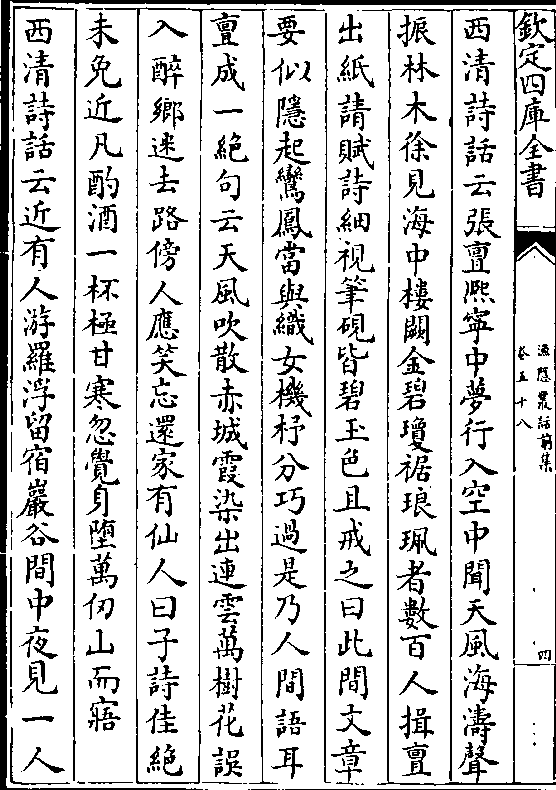 欽定四庫全書
漁隱叢話前集
卷五十八
四
西清詩話云張亶熈寧中夢行入空中聞天風海濤聲
振林木徐見海中樓闕金碧瓊裾琅珮者數百人揖亶
出紙請賦詩細視筆硯皆碧玉色且戒之曰此間文章
要似隱起鸞鳳當與織女機杼分巧過是乃人間語耳
亶成一絶句云天風吹散赤城霞染出連雲萬樹花誤
入醉鄉迷去路傍人應笑忘還家有仙人曰子詩佳絶
未免近凡酌酒一杯極甘寒忽覺身墮萬仞山而寤
西清詩話云近有人游羅浮留宿巖谷間中夜見一人